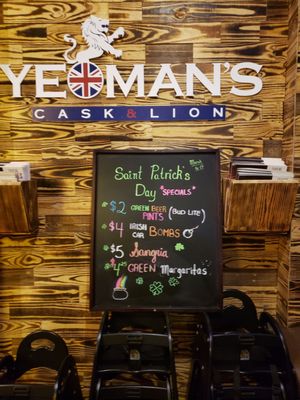 YEOMAN'S
CASK & LION
Saint Patrick's
Day *SPECIALS*
$2 GREEN BEER PINTS (BUD LITE)
$4 IRISH CAR BOMBS
$5 Sangria
$4.25 GREEN Margaritas